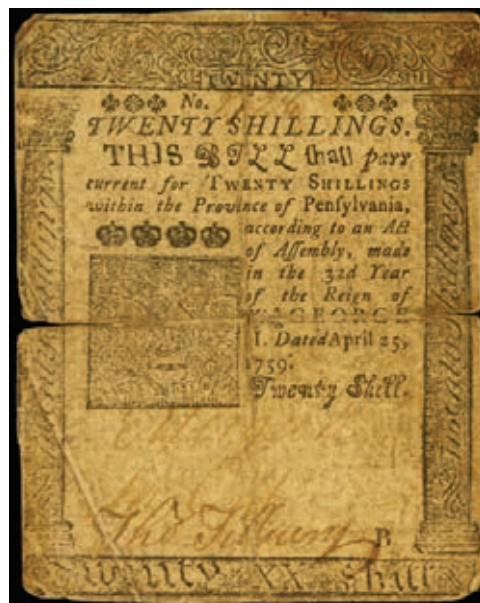 TWENTY SHILL
No.
TWENTY SHILLINGS.
THIS BILL shall pass
current for TWENTY SHILLINGS
within the Province of Pensylvania,
according to an Act
of Assembly, made
in the 32d Year
of the Reign of
GEORGE
I. Dated April 25,
1759.
Twenty Shill.
B
Twenty XX Shill